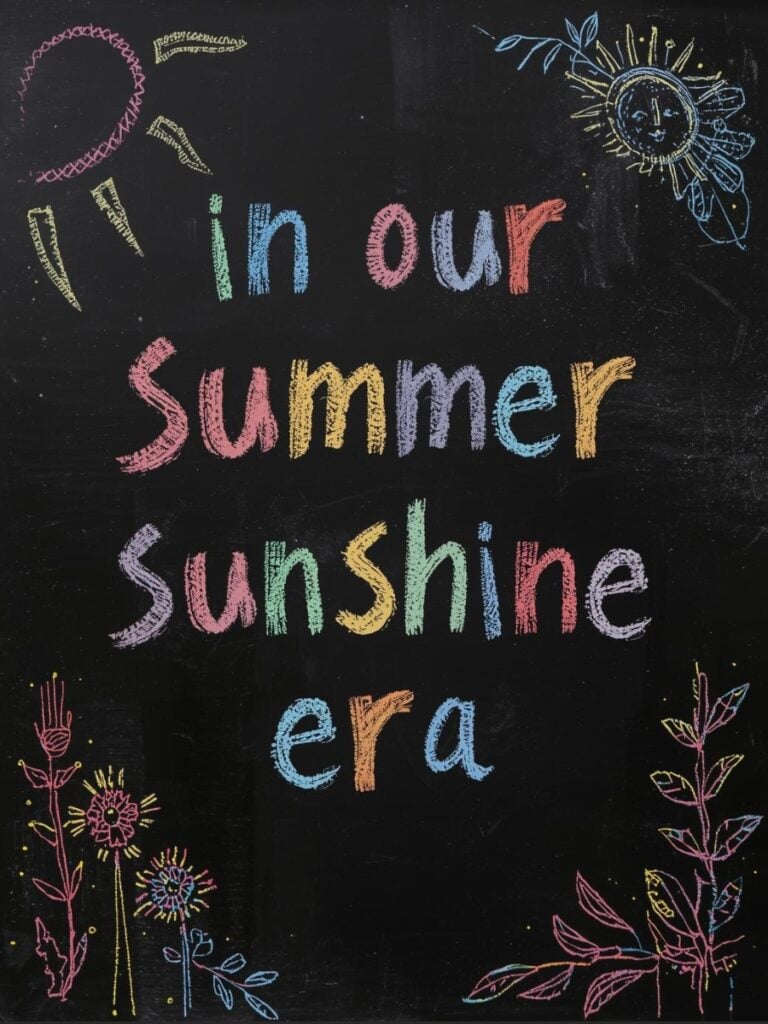 in our
summer
sunshine
era